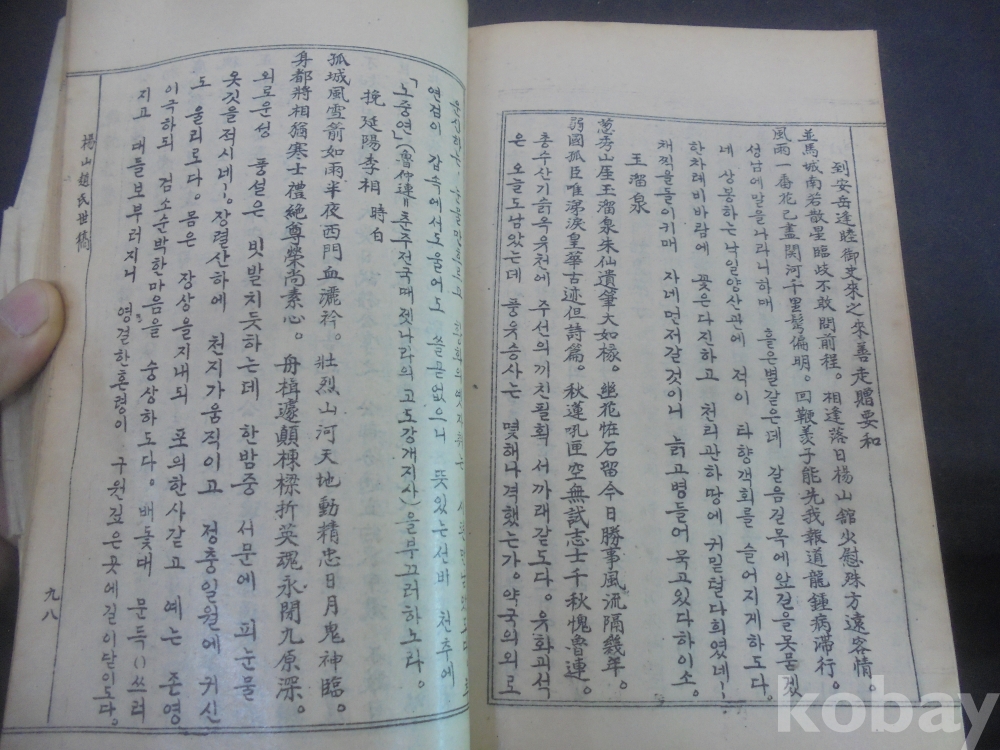 到安岳逢睦御史來之來善走贈要和
相逢落日楊山舘少慰殊方遠客情。
並馬城南若散星臨歧不敢問前程。
風雨一番花已盡関河千里髩偏明。回鞭羡子能先我報道龍鍾病滯行。
성남에말을나라니하매 흩은별같은데 갈음길목에앞길을못뭇겠
네 상봉하는 날일양산관에 적이 타향객회를 슬어지게하도다
한차례비바람에 꽃은다진하고 천리관하땅에 귀밑털다희였네!
채찍을돌이키매 자네먼저갈것이니 늙고병들어 묵고있다하이소.
玉溜泉
葱秀山崖玉溜泉朱仙遺筆大如椽。幽花恠石留今日勝事風流隔幾年。
弱國孤臣唯涕淚皇華古迹但詩篇。秋蓮吼匣空無試志士千秋愧魯連。
총수산기슭옥유천에 주선의끼친필획 서까래같도다. 유화괴석
은 오늘도남았는데 풍유승사는 몇해나격했는가. 약국의외로
연검이 갑속에서도울어도 쓸곧없으니 뜻있는선바 천추에
「노중연」(魯仲連=춘추전국때젯나라의고도강개지사)을부끄러하노라.
挽延陽李相 時白
孤城風雪箭如雨半夜西門血灑衿。壯烈山河天地動精忠日月鬼神臨。
身都將相猶寒士禮絶尊榮尚素心。舟楫遽顛棟樑折英魂永閉九原深。
외로운성 풍설은 빗발치듯하는데 한밤중 서문에 피눈물
옷깃을적시네!. 장렬산하에 천지가움직이고 정충일월에 귀신
도 울리로다. 몸은 장상을지내되 포의한사같고 예는 존영
이극하되 검소순박한마음을 숭상하도다. 배돛대 문득()쓰러
지고 대들보부러지니 영걸한혼령이 구원깊은곳에길이닫이도다.
楊山趙氏世稿
九八
kobay